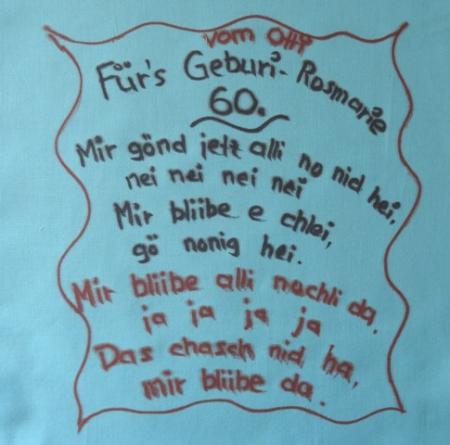 vom Olli
Für's Geburi-Rosmarie
60.
Mir gönd jetz alli no nid hei,
nei nei nei nei
Mir bliibe e chlei,
gö nonig hei.
Mir bliibe alli nachli da,
ja ja ja ja
Das chasch nid ha,
mir bliibe da.